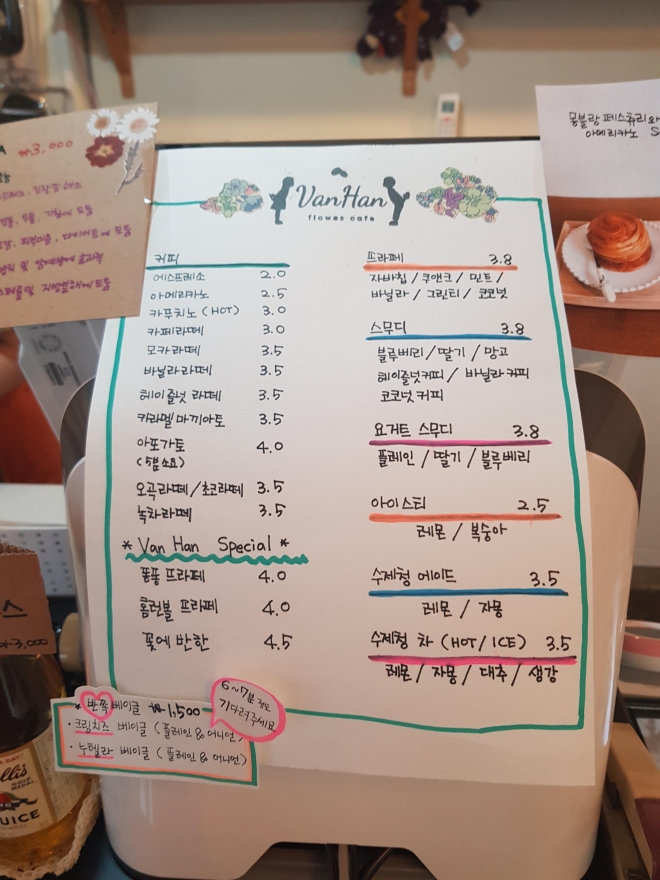 ₩3,000
Van Han
flower cafe
커피
에스프레소 2.0
아메리카노 2.5
카푸치노 (HOT) 3.0
카페라떼 3.0
모카라떼 3.5
바닐라라떼 3.5
헤이즐넛 라떼 3.5
카라멜마끼아또 3.5
아포가토 4.0
(5분소요)
오곡라떼/초코라떼 3.5
녹차라떼 3.5
* Van Han Special *
퐁퐁 프라페 4.0
홈런볼 프라페 4.0
꽃에 반한 4.5
프라페 3.8
자바칩/쿠앤크/민트/
바닐라/그린티/코코넛
스무디 3.8
블루베리/딸기/망고
헤이즐넛커피/바닐라커피
코코넛커피
요거트 스무디 3.8
플레인/딸기/블루베리
아이스티 2.5
레몬/복숭아
수제청 에이드 3.5
레몬/자몽
수제청 차 (HOT/ICE) 3.5
레몬/자몽/대추/생강
* 반쪽 베이글 ₩1,500
· 크림치즈 베이글 (플레인 & 어니언)
· 누텔라 베이글 (플레인 & 어니언)
6~7분 정도
기다려주세요
몽블랑 페스츄리와
아메리카노
₩3,000
JUICE